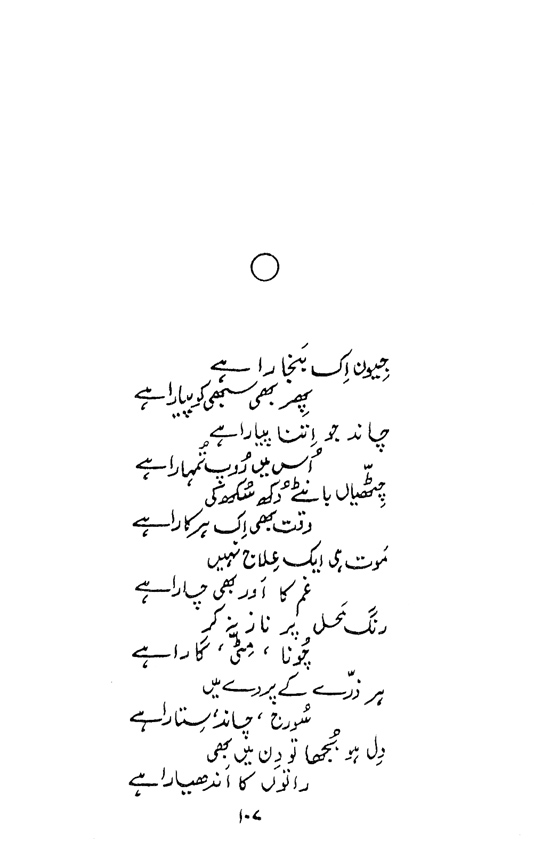 جِیون اِک بَنجارا ہے
پِھر بھی سبھی کو پیارا ہے
چاند جو اِتنا پیارا ہے
اُس میں رُوپ تُمہارا ہے
چِٹّھیاں بانٹے دُکھ سُکھ کی
وقت بھی اِک ہرکارا ہے
مَوت ہی ایک عِلاج نہیں
غم کا اَور بھی چارا ہے
رنگ مَحل پر ناز نہ کر
چُونا ، مِٹّی ، گارا ہے
ہر ذرّے کے پردے میں
سُورج ، چاند ، سِتارا ہے
دِل ہو بُجھا تو دِن میں بھی
راتوں کا اَندھیارا ہے
۱۰۷